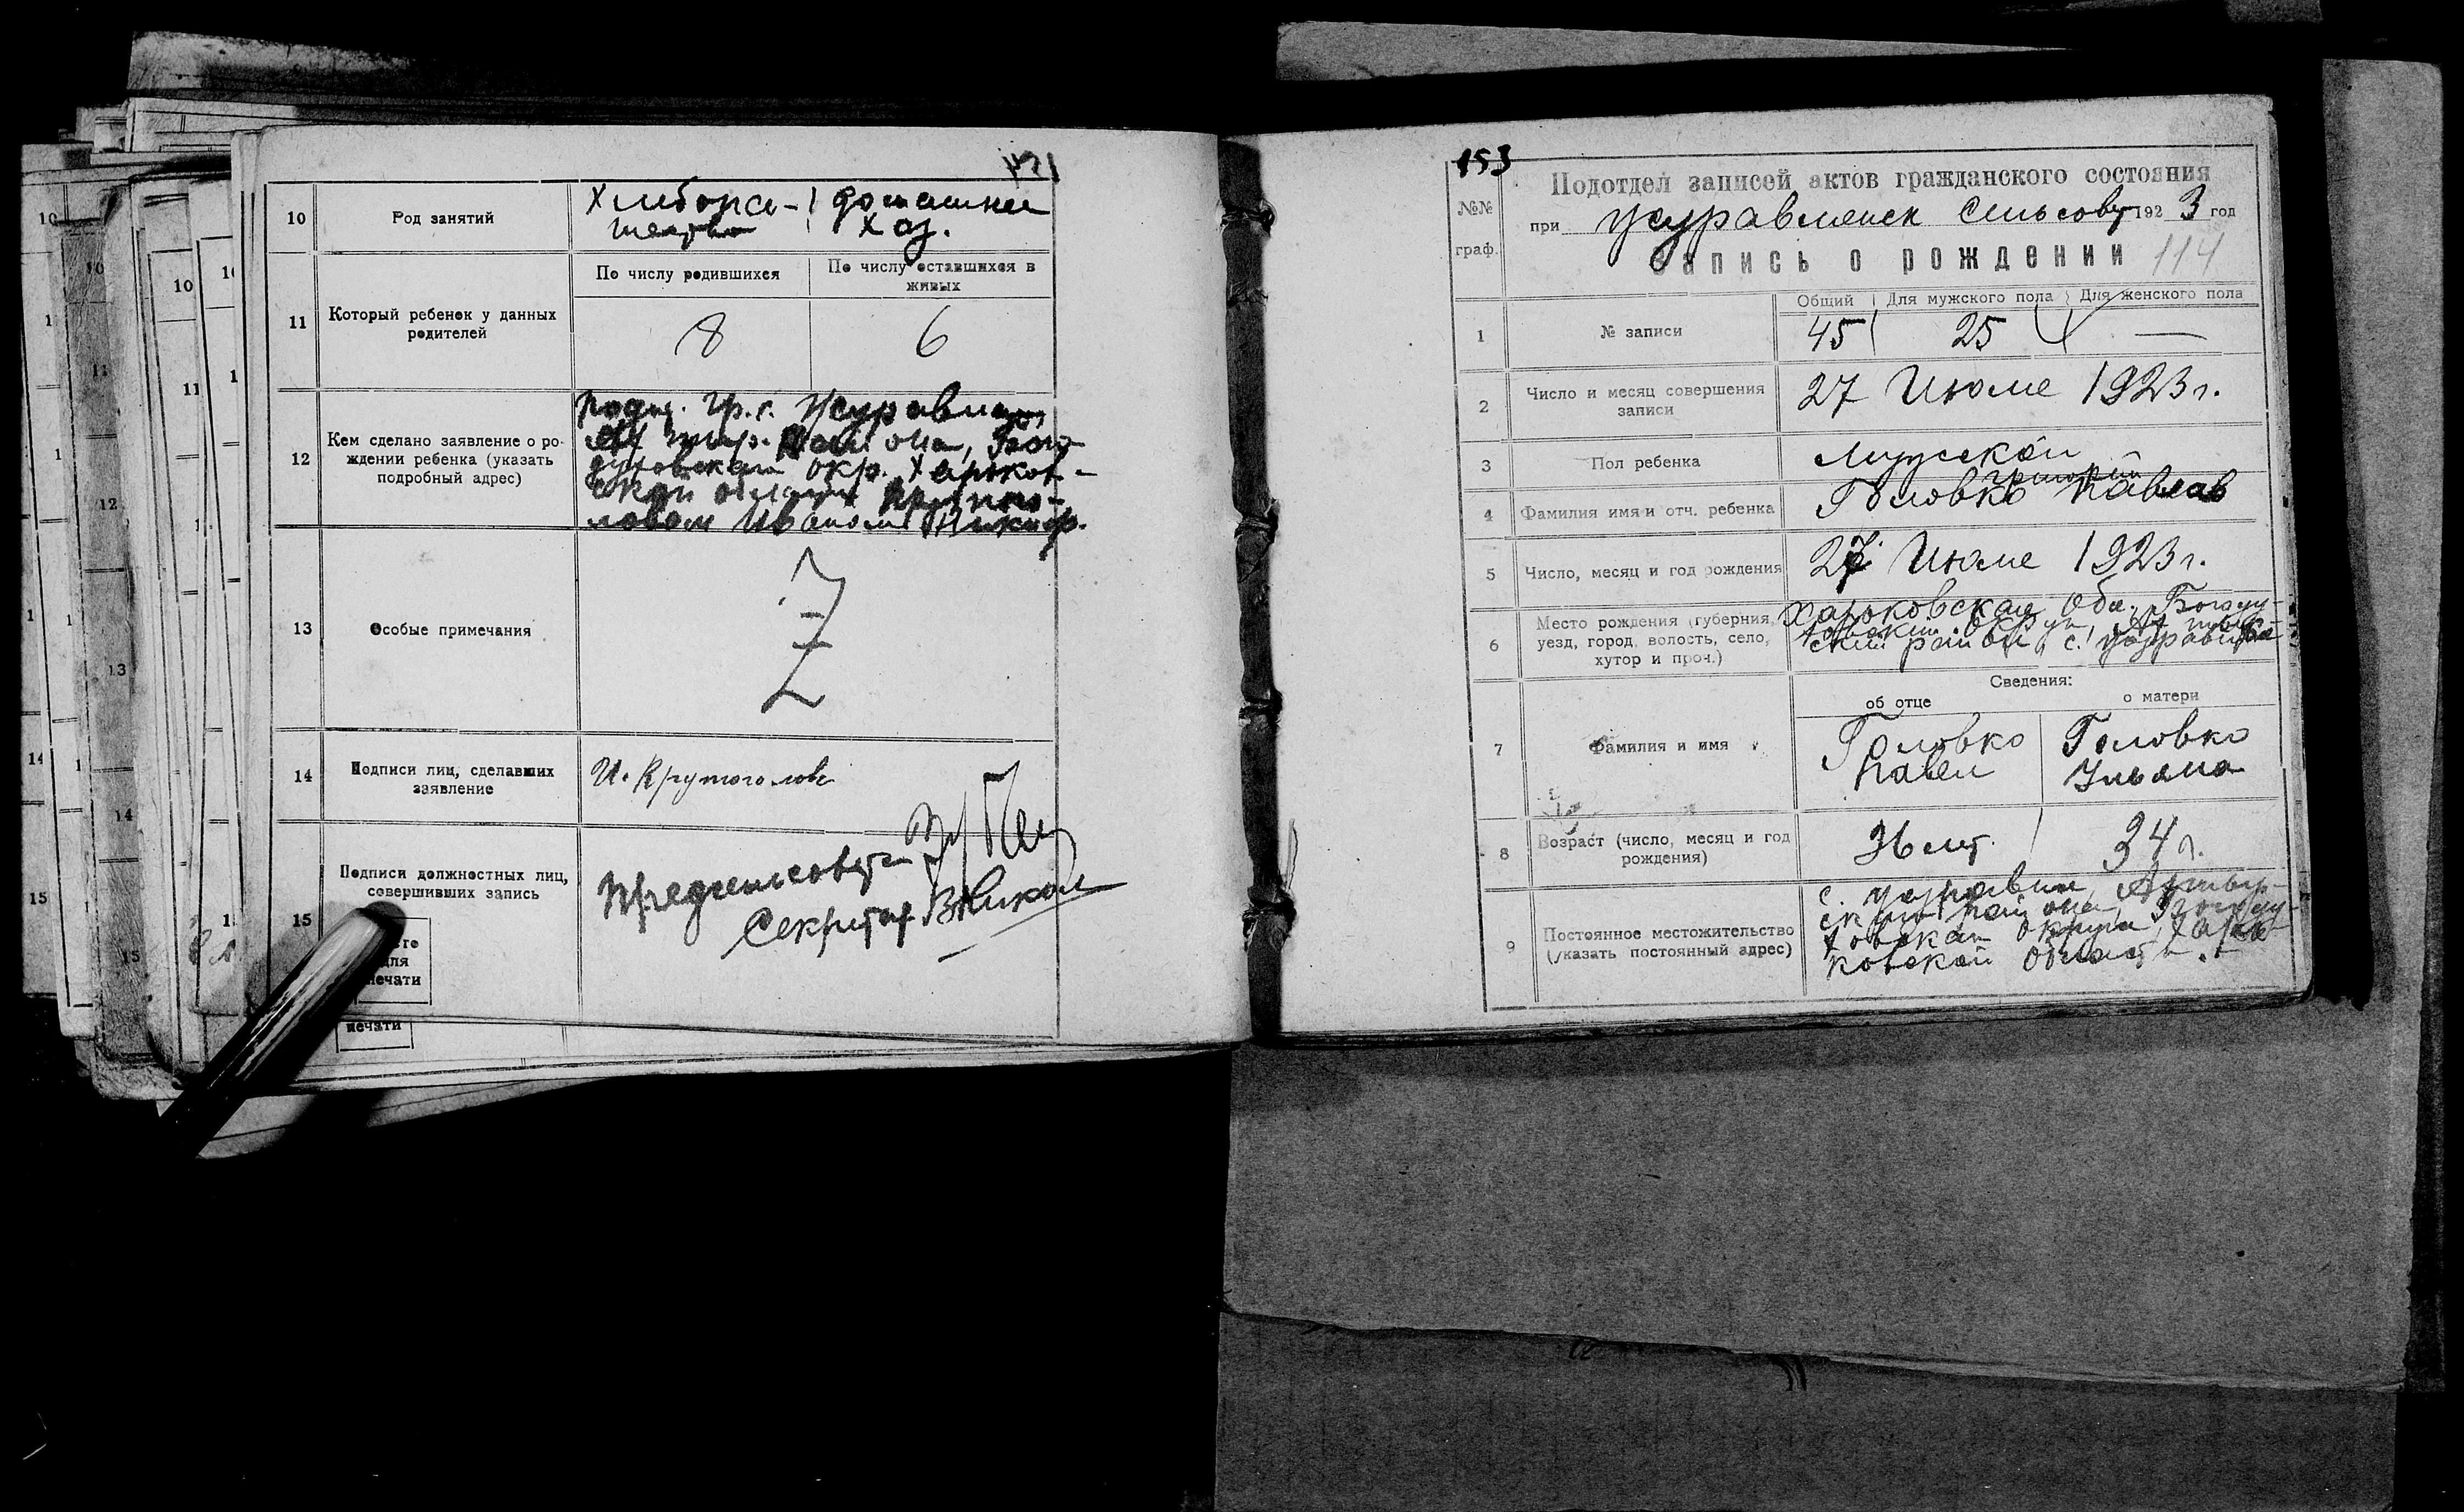 10
Род занятий
Хлибопа- домашнее
шество Хоз.
11
Который ребенок у данных
родителей
По числу родившихся
По числу оставшихся в
живых
8
6
12
Кем сделано заявление о ро-
ждении ребенка (указать
подробный адрес)
гр. с. Журавли
района, Бого-
духовская окр. Харьков-
ской области Крутого-
ловом Иваном Никиф.
13
Особые примечания
Z
14
Подписи лиц, сделавших
заявление
И. Крутоголов
15
Подписи должностных лиц,
совершивших запись
для
печати
печати
Предсельсовета
Секретар
153
№№
граф.
Подотдел записей актов гражданского состояния
при Журавленск Сельсовет 1923 год
Запись о рождении 114
1
№ записи
Общий
Для мужского пола
Для женского пола
45
25
—
2
Число и месяц совершения
записи
27 Июле 1923 г.
3
Пол ребенка
Мужской
4
Фамилия имя и отч. ребенка
Григорий
Головко Павлов
5
Число, месяц и год рождения
27 Июле 1923 г.
6
Место рождения (губерния,
уезд, город, волость, село,
хутор и проч.)
Харьковская Обл. Богоду-
ховский Округ,
ский район с.
7
Фамилия и имя
Сведения:
об отце
о матери
Головко
Павел
Головко
Ульяна
8
Возраст (число, месяц и год
рождения)
36 лет.
34 г.
9
Постоянное местожительство
(указать постоянный адрес)
с. Журавли, Ахтыр-
ского района, Богоду-
ховская округа, Харь-
ковской области.